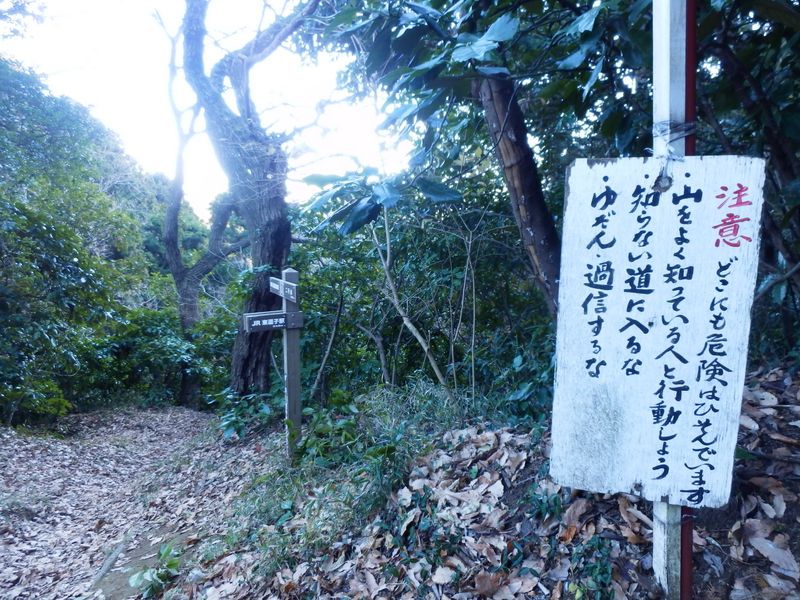 注意 どこにも危険はひそんでいます
・山をよく知っている人と行動しよう
・知らない道に入るな
・ゆだん、過信するな
JR 東逗子駅